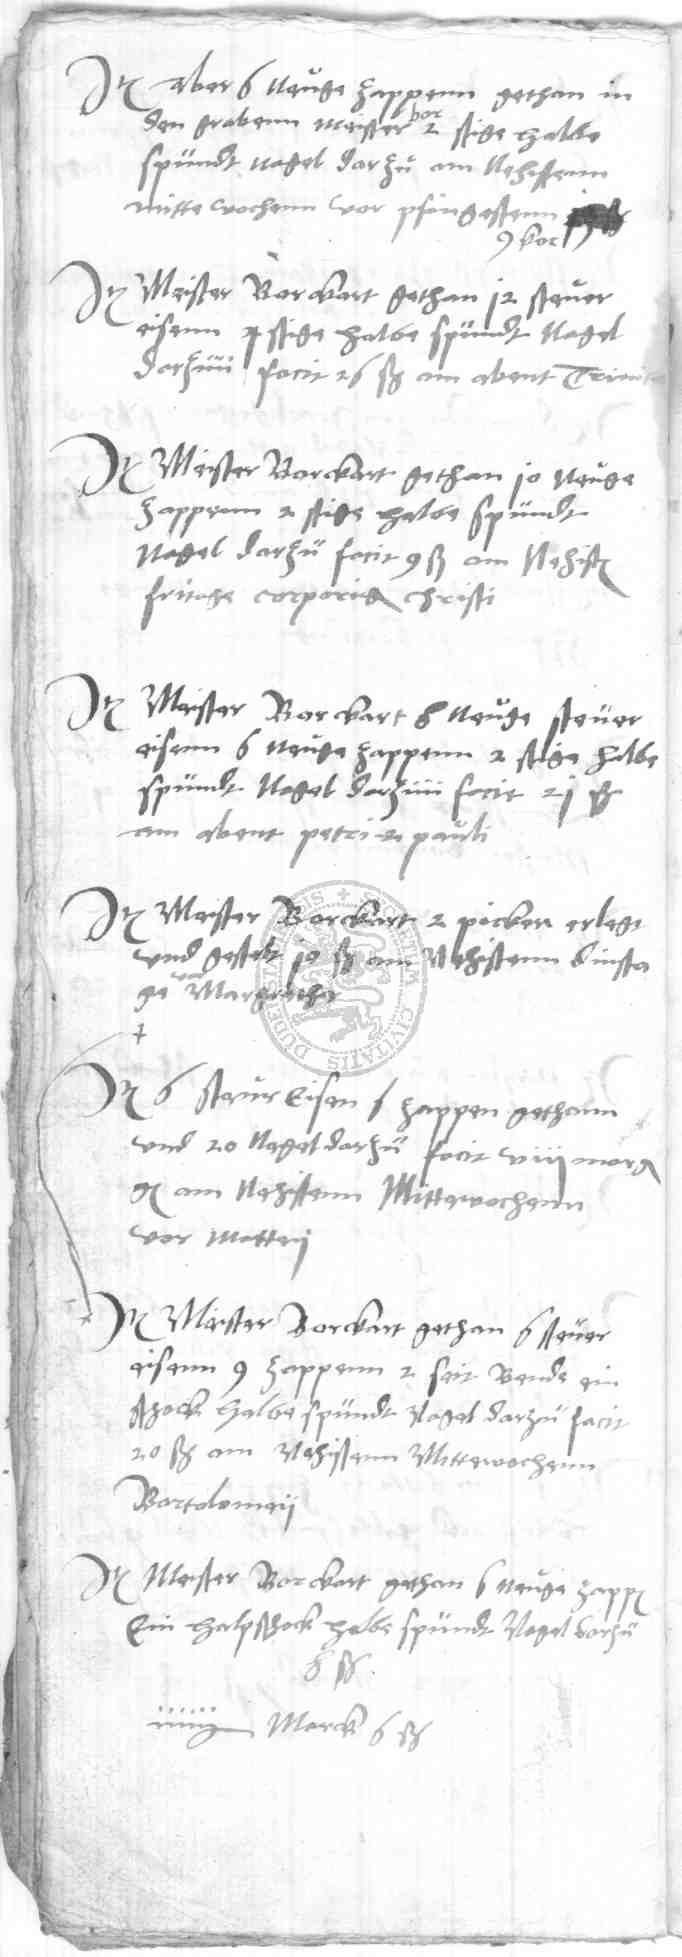 It aber 6 neuge zappenn gethan in
den grabenn meister bor 2 stige halbe
spundt nagel darzu am nehistenn
mittewochenn vor pfingestenn
9 bor
It Meister Borckart gethan j2 steuer
eisenn 4 stige halbe spundt nagel
darzuu facit 26 ß am abent Trinit
It Meister Borckart gethan jo neuge
zappenn 2 stige halbe spundt
nagel darzu facit 9 ß am nehist
fritage corporis christi
It Meister Borckart 6 neuge steuer
eisenn 6 neuge zappenn 2 stige halbe
spundt nagel darzuu facit 2j ß
am abent petri 2 pauli
It Meister Borckart 2 picken erlegt
und gestelt jo ß am nehistenn dinsta
ge vor Margrethe
It 6 steur Eisen 6 zappen gethann
und 20 nagel darzu facit viij
am nehistenn Mittewochenn
vor Mattej
It Meister Borckart gethan 6 steuer
eisenn 9 zappenn 2 seit bende ein
schock halbe spundt nagel darzu facit
20 ß am nehistenn Mittewochenn
Bartolomeij
It Meister Borckart gethan 6 neuge zapp
Ein halpschock halbe spundt nagel darzu
6 ß
Marck 6 ß
CIVITATIS